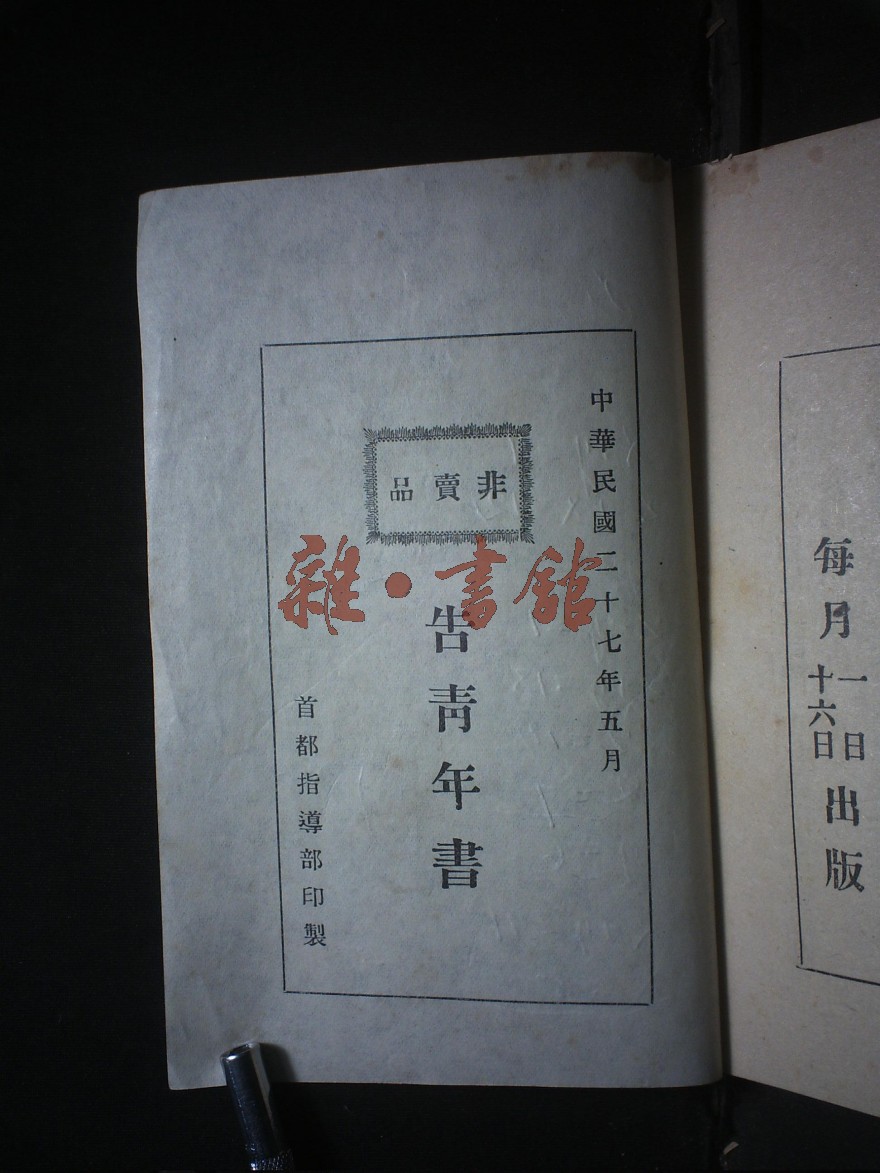 每月一日十六日出版
中華民國二十七年五月
非賣品
告青年書
首都指導部印製
雜·書館